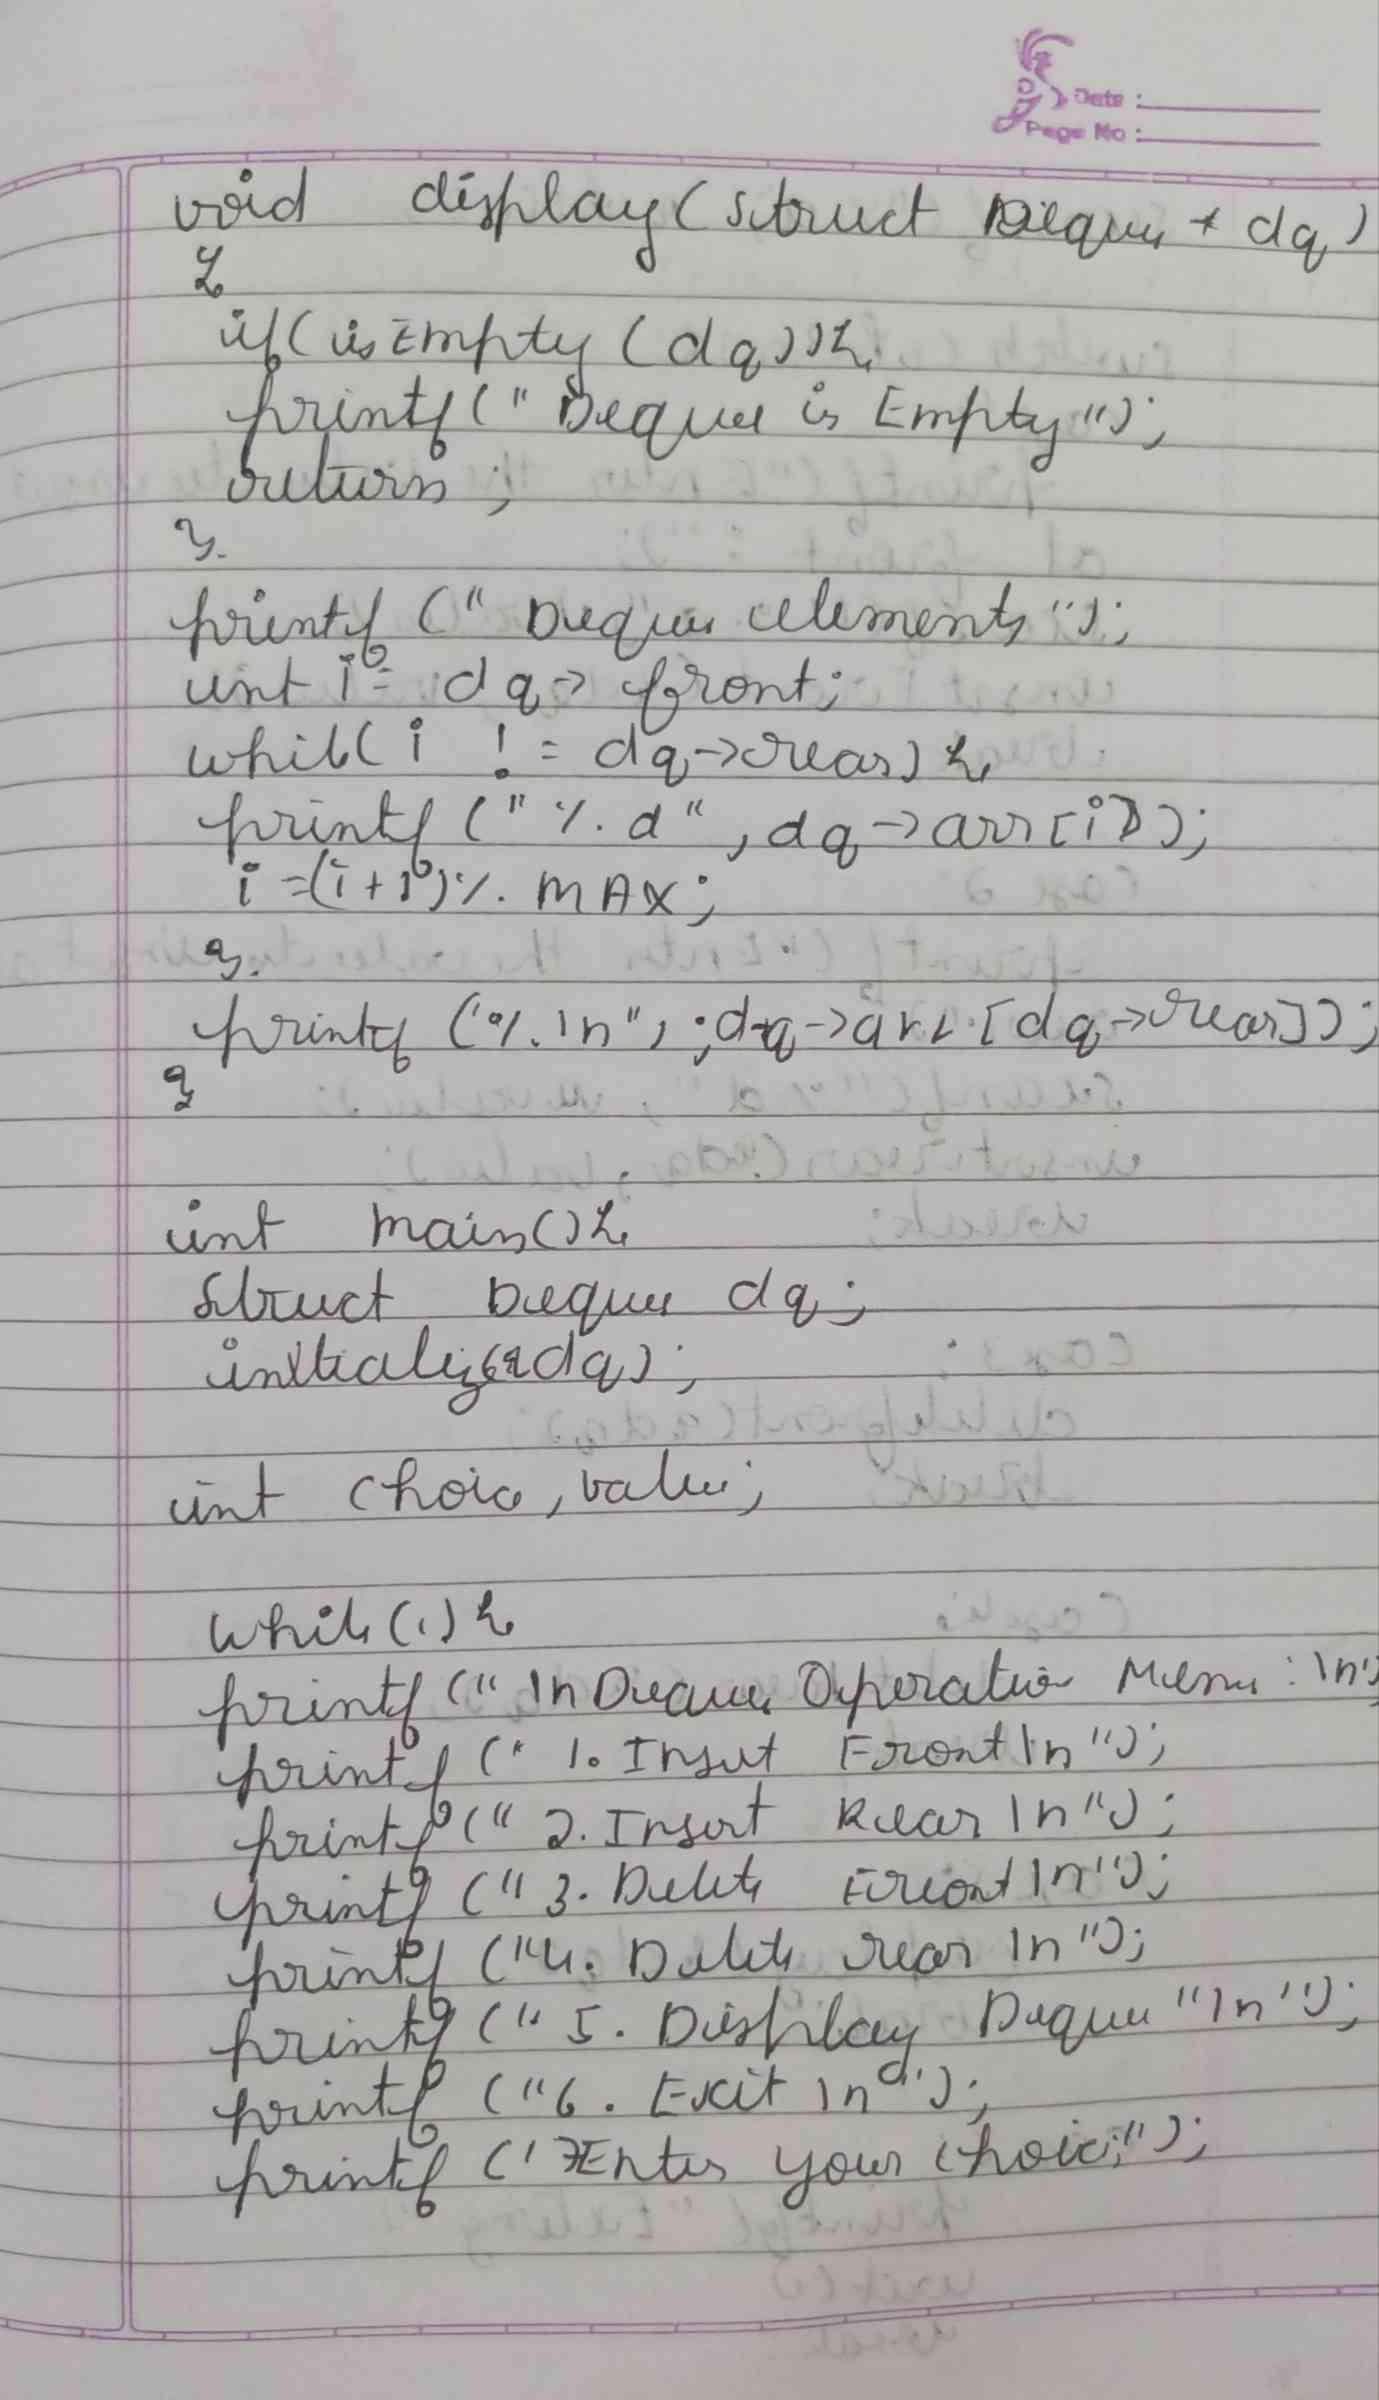 Date :
Page No :
void display(struct Deque * dq)
{
if(isEmpty(dq)){
printf("Deque is Empty");
return;
}
printf("Deque elements");
int i = dq->front;
while(i != dq->rear){
printf("%d", dq->arr[i]);
i=(i+1)% MAX;
}
printf("%\n", ;dq->arr[dq->rear]);
}
int main(){
struct Deque dq;
initialize(&dq);
int choice, value;
while(1){
printf("\nDeque Operation Menu:\n")
printf("1. Insert Front\n");
printf("2. Insert Rear\n");
printf("3. Delete Front\n");
printf("4. Delete rear\n");
printf("5. Display Deque"\n");
printf("6. Exit\n");
printf("Enter your choice:");